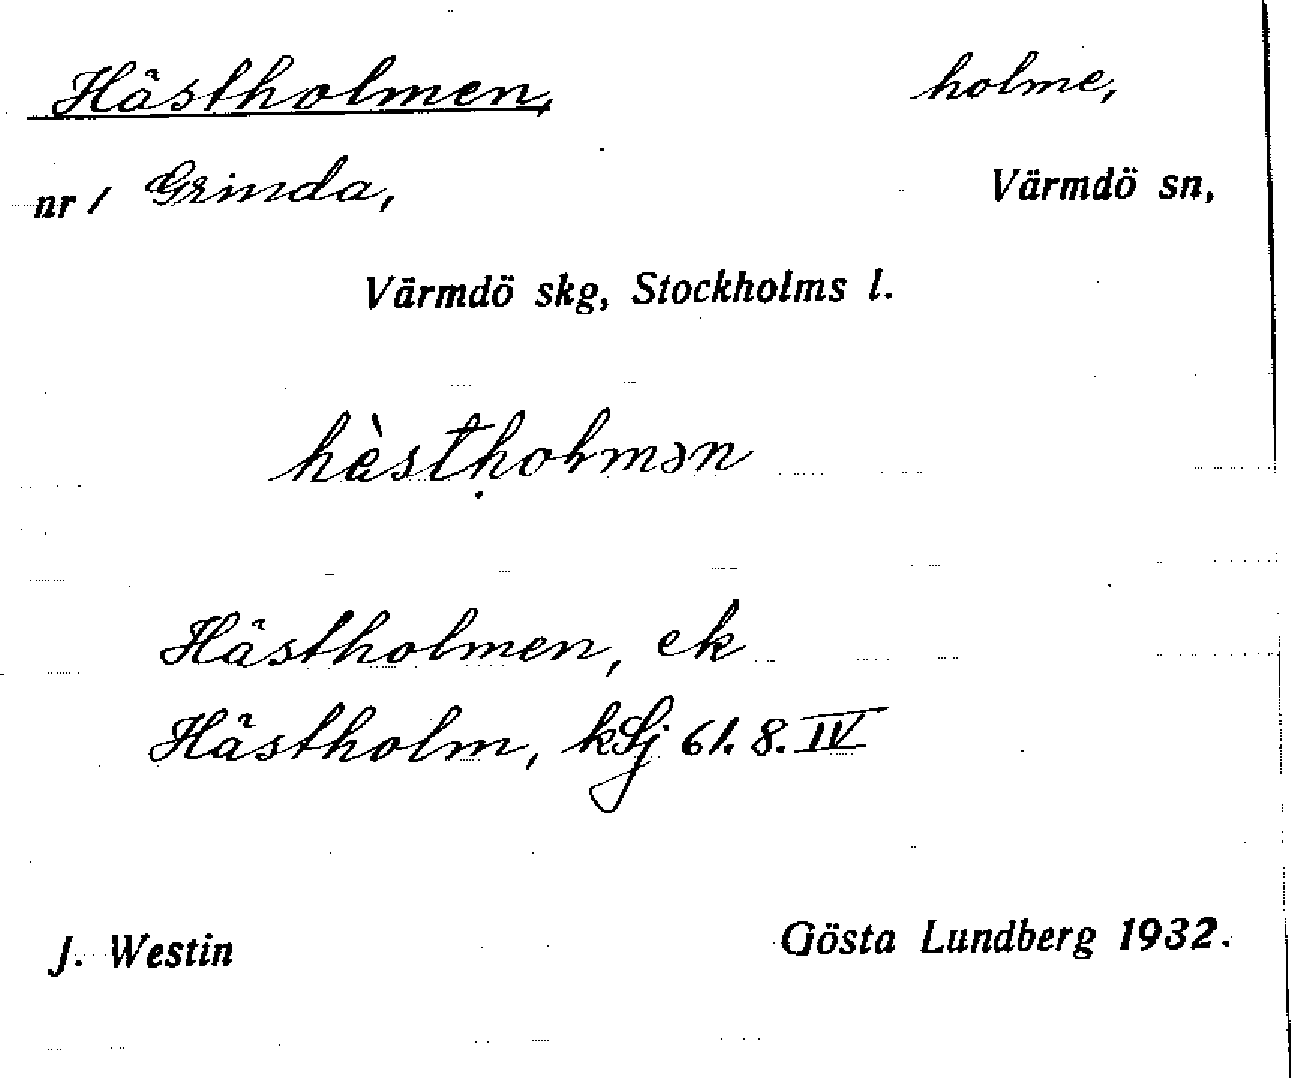 Hästholmen, holme,
nr 1 Grinda, Värmdö sn,
Värmdö skg, Stockholms l.
hὲstholmən
Hästholmen, ek
Hästholm, kSj 61. 8. IV
J. Westin Gösta Lundberg 1932.